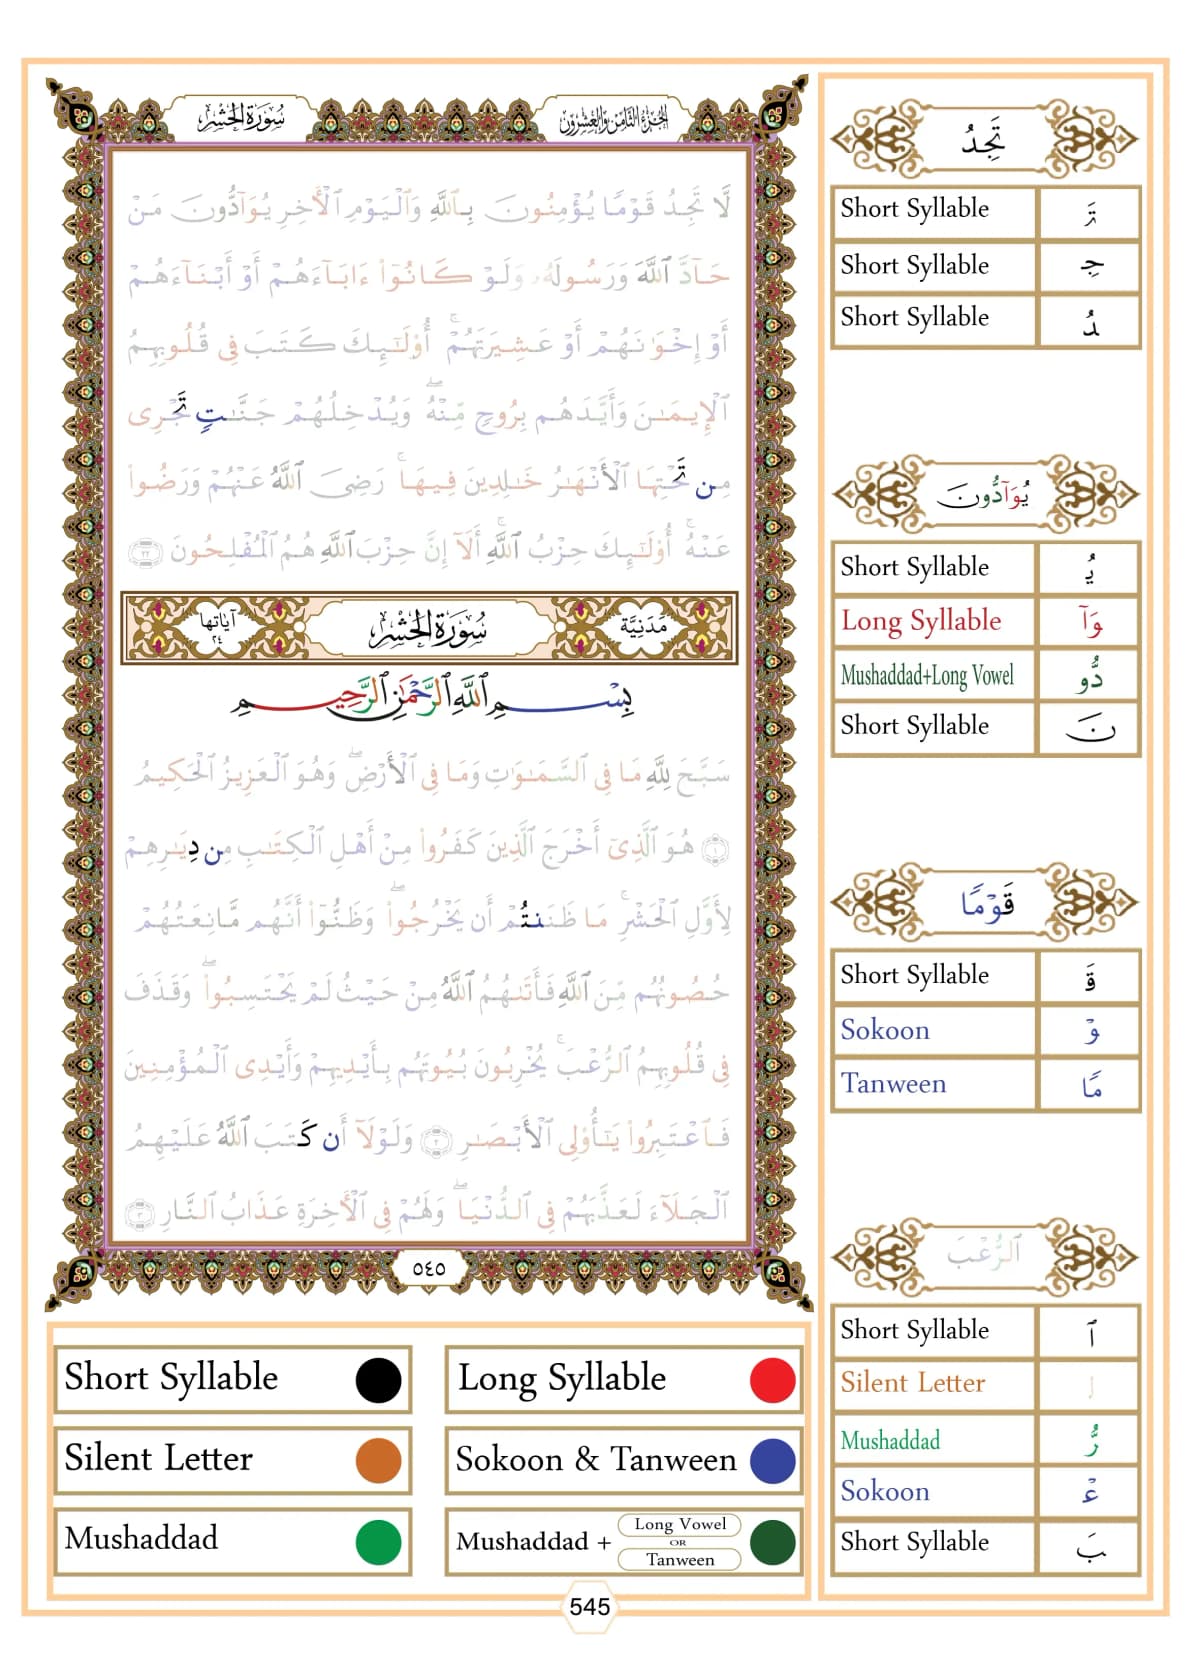 سُورَةُ الحَشْرِ
الجُزْءُ الثَّامِنُ وَالعِشْرُونَ
لَّا تَجِدُ قَوْمًا يُؤْمِنُونَ بِٱللَّهِ وَٱلْيَوْمِ ٱلْأَخِرِ يُوَآدُّونَ مَنْ
حَآدَّ ٱللَّهَ وَرَسُولَهُۥ وَلَوْ كَانُوٓا۟ ءَابَآءَهُمْ أَوْ أَبْنَآءَهُمْ
أَوْ إِخْوَٰنَهُمْ أَوْ عَشِيرَتَهُمْ ۚ أُو۟لَٰٓئِكَ كَتَبَ فِى قُلُوبِهِمُ
ٱلْإِيمَٰنَ وَأَيَّدَهُم بِرُوحٍ مِّنْهُ ۖ وَيُدْخِلُهُمْ جَنَّٰتٍ تَجْرِى
مِن تَحْتِهَا ٱلْأَنْهَٰرُ خَٰلِدِينَ فِيهَا ۚ رَضِىَ ٱللَّهُ عَنْهُمْ وَرَضُوا۟
عَنْهُ ۚ أُو۟لَٰٓئِكَ حِزْبُ ٱللَّهِ ۚ أَلَآ إِنَّ حِزْبَ ٱللَّهِ هُمُ ٱلْمُفْلِحُونَ ٢٢
مَدَنِيَّة سُورَةُ الحَشْرِ آيَاتها ٢٤
بِسْمِ ٱللَّهِ ٱلرَّحْمَٰنِ ٱلرَّحِيمِ
سَبَّحَ لِلَّهِ مَا فِى ٱلسَّمَٰوَٰتِ وَمَا فِى ٱلْأَرْضِ ۖ وَهُوَ ٱلْعَزِيزُ ٱلْحَكِيمُ
١ هُوَ ٱلَّذِىٓ أَخْرَجَ ٱلَّذِينَ كَفَرُوا۟ مِنْ أَهْلِ ٱلْكِتَٰبِ مِن دِيَٰرِهِمْ
لِأَوَّلِ ٱلْحَشْرِ ۚ مَا ظَنَنتُمْ أَن يَخْرُجُوا۟ ۖ وَظَنُّوٓا۟ أَنَّهُم مَّانِعَتُهُمْ
حُصُونُهُم مِّنَ ٱللَّهِ فَأَتَىٰهُمُ ٱللَّهُ مِنْ حَيْثُ لَمْ يَحْتَسِبُوا۟ ۖ وَقَذَفَ
فِى قُلُوبِهِمُ ٱلرُّعْبَ ۚ يُخْرِبُونَ بُيُوتَهُم بِأَيْدِيهِمْ وَأَيْدِى ٱلْمُؤْمِنِينَ
فَٱعْتَبِرُوا۟ يَٰٓأُو۟لِى ٱلْأَبْصَٰرِ ٢ وَلَوْلَآ أَن كَتَبَ ٱللَّهُ عَلَيْهِمُ
ٱلْجَلَآءَ لَعَذَّبَهُمْ فِى ٱلدُّنْيَا ۖ وَلَهُمْ فِى ٱلْأَخِرَةِ عَذَابُ ٱلنَّارِ ٣
٥٤٥
تَجِدُ
Short Syllable تَ
Short Syllable جِ
Short Syllable دُ
يُوَآدُّونَ
Short Syllable يُ
Long Syllable وَآ
Mushaddad+Long Vowel دُّو
Short Syllable نَ
قَوْمًا
Short Syllable قَ
Sokoon وْ
Tanween مًا
ٱلرُّعْبَ
Short Syllable ٱ
Silent Letter ل
Mushaddad رُّ
Sokoon عْ
Short Syllable بَ
Short Syllable
Long Syllable
Silent Letter
Sokoon & Tanween
Mushaddad
Mushaddad + Long Vowel OR Tanween
545